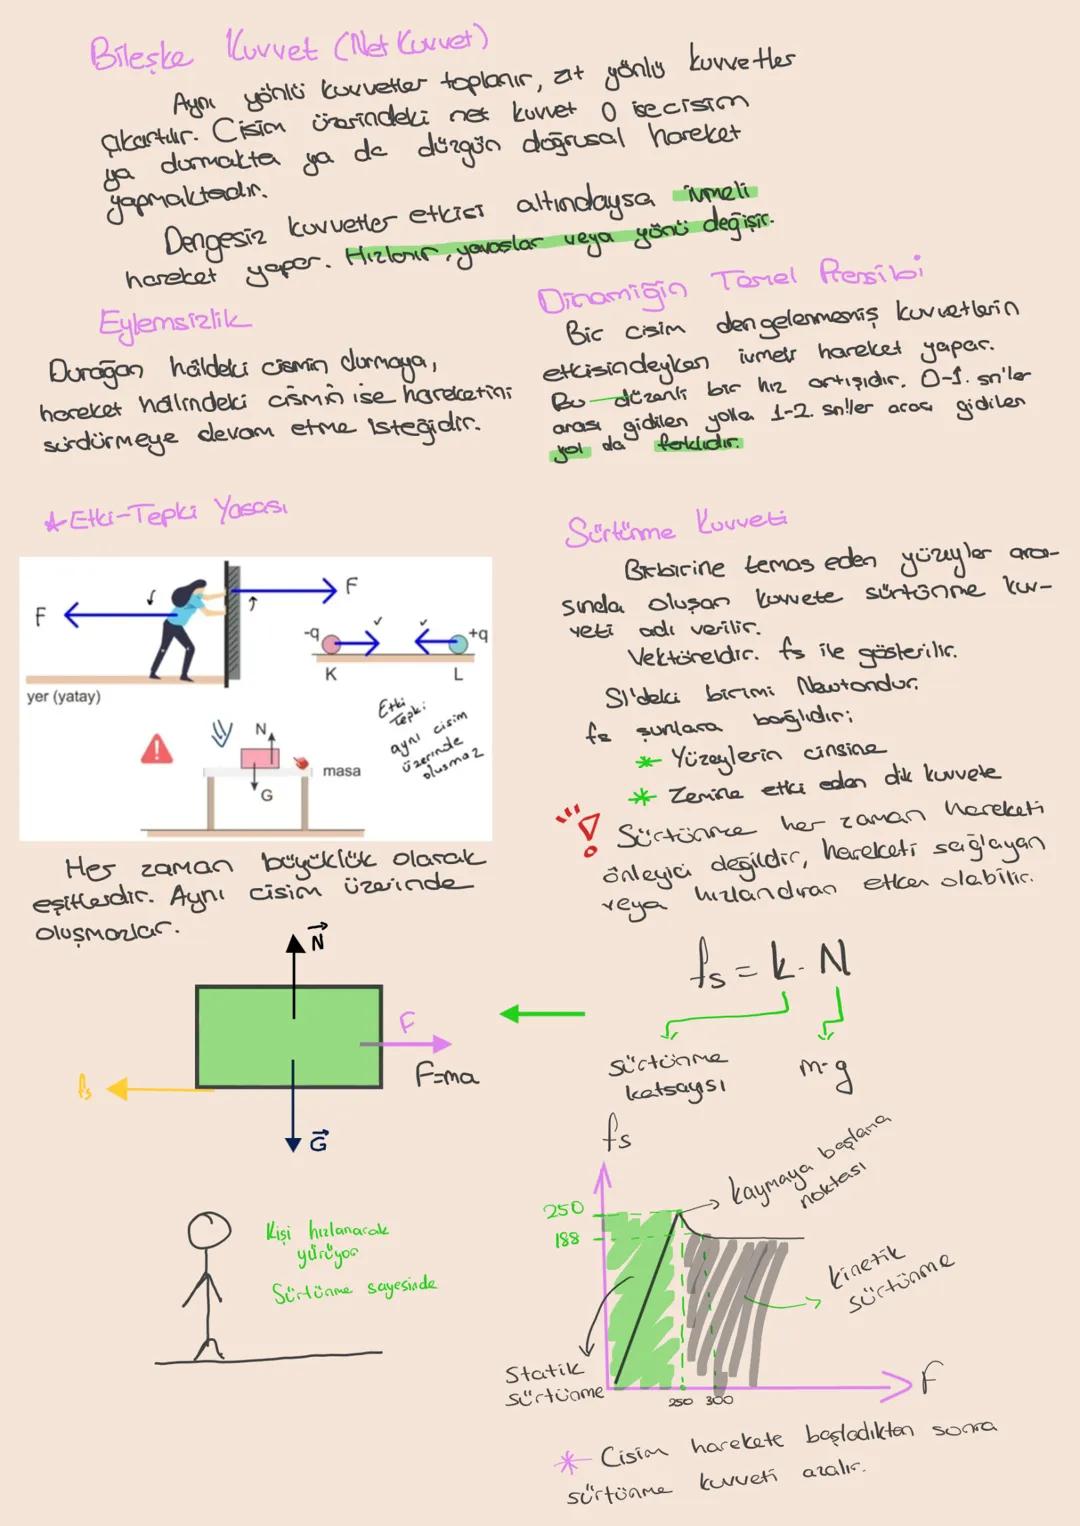 Bileşke Kuvvet (Net Kuvvet)
Aynı yönlü kuvvetler toplanır, zıt yönlü kuvvetler
çıkartılır. Cisim üzerindeki net kuvvet 0 ise cisim
ya durmakta ya da düzgün doğrusal hareket
yapmaktadır.
Dengesiz kuvvetler etkisi altındaysa ivmeli
hareket yapar. Hızlanır, yavaşlar veya yönü değişir.
Eylemsizlik
Durağan hâldeki cismin durmaya,
hareket hâlindeki cismin ise hareketini
sürdürmeye devam etme isteğidir.
Dinamiğin Temel Prensibi
Bir cisim dengelenmemiş kuvvetlerin
etkisindeyken ivmeli hareket yapar.
Bu düzenli bir hız artışıdır. 0-1. sn'ler
arası gidilen yolla 1-2. sn'ler arası gidilen
yol da farklıdır.
*Etki-Tepki Yasası
F
F
-q
+q
K
L
yer (yatay)
N
masa
G
Etki
Tepki
aynı cisim
üzerinde
oluşmaz
Her zaman büyüklük olarak
eşitlerdir. Aynı cisim üzerinde
oluşmazlar.
N
F
F=ma
fs
G
Kişi hızlanarak
yürüyor
Sürtünme sayesinde
Sürtünme Kuvveti
Birbirine temas eden yüzeyler ara-
sında oluşan kuvvete sürtünme kuv-
veti adı verilir.
Vektöreldir. fs ile gösterilir.
SI'deki birimi Newtondur.
fs şunlara bağlıdır;
* Yüzeylerin cinsine
* Zemine etki eden dik kuvvete
! Sürtünme her zaman hareketi
önleyici değildir, hareketi sağlayan
veya hızlandıran etken olabilir.
fs = k. N
sürtünme
katsayısı
m.g
fs
250
188
kaymaya başlama
noktası
kinetik
sürtünme
Statik
sürtünme
250 300
F
* Cisim harekete başladıktan sonra
sürtünme kuvveti azalır.